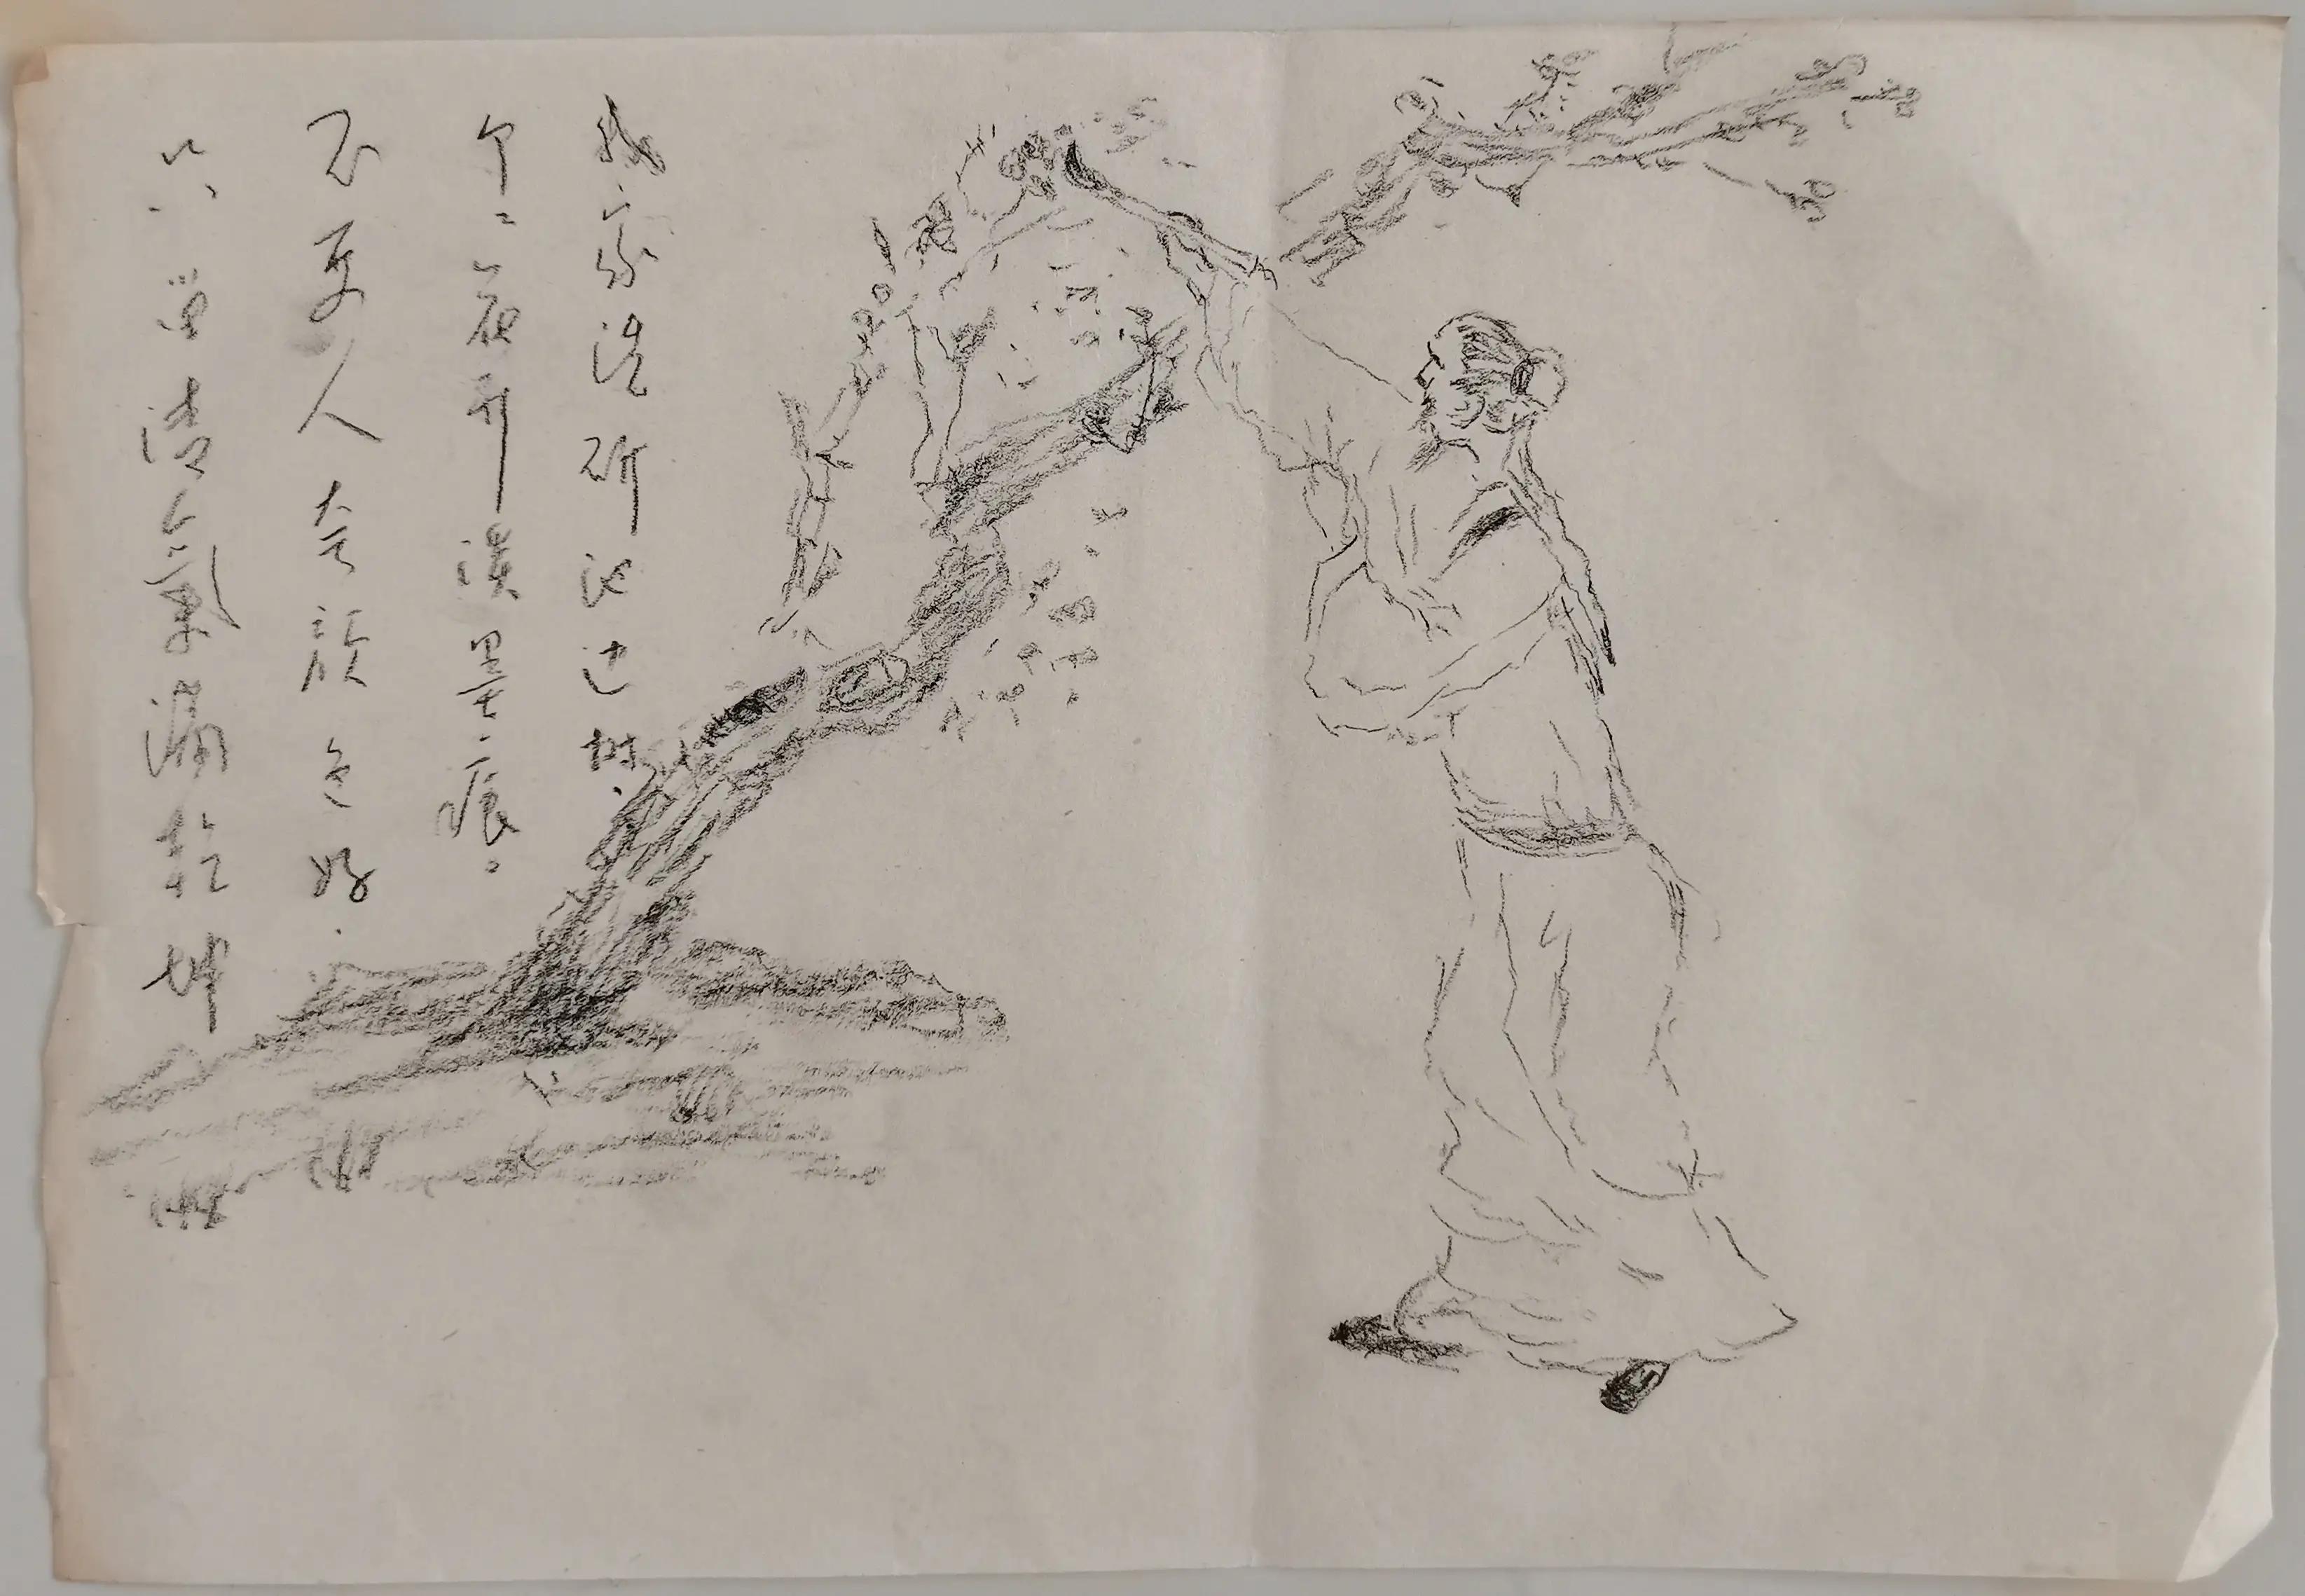 我家洗砚池边树.
个々花开淡墨痕。
不要人夸颜色好.
只留清气满乾坤